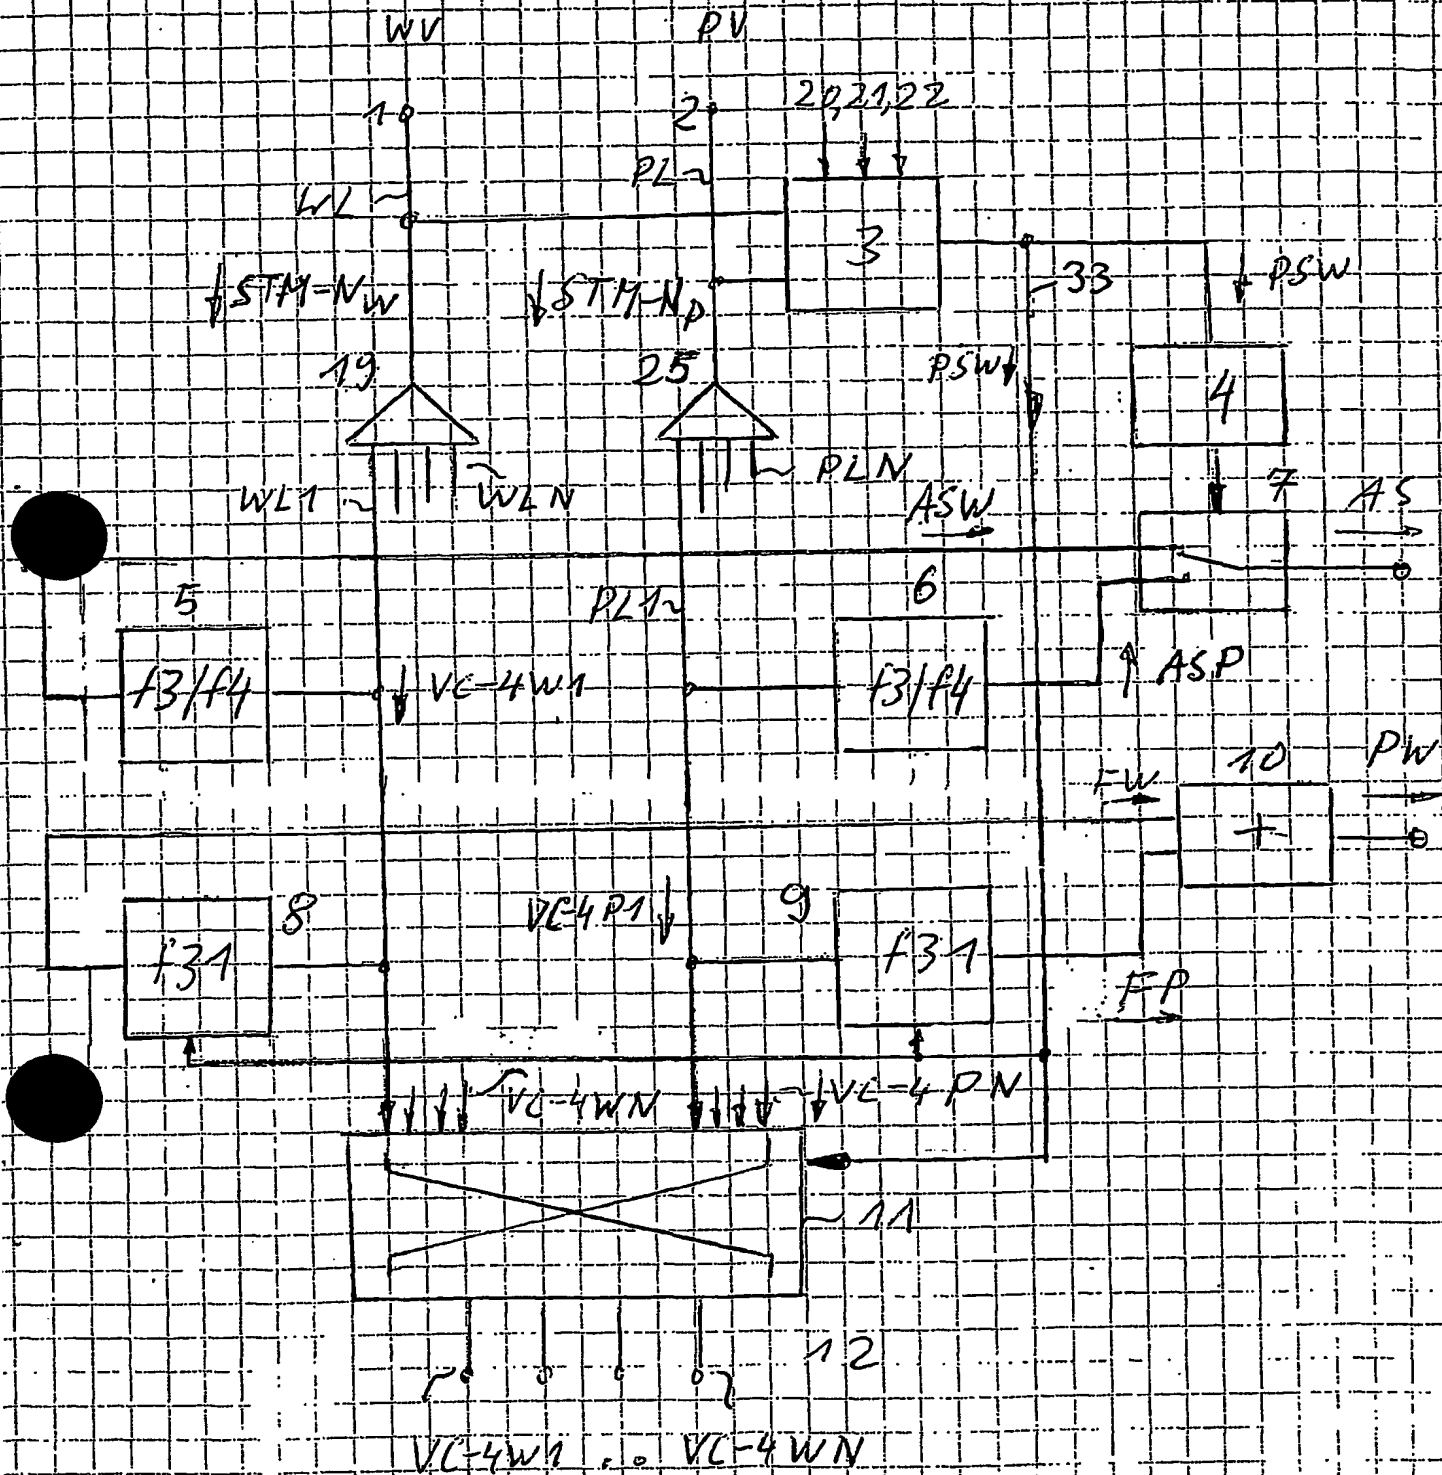 WV PV
1 2 20,21,22
PL
WL
3
STM-NW STM-NP 33 PSW
19 25 PSW 4
PLN
WL1 WLN ASW 7 AS
5 PL1 6
f3/f4 VC-4W1 f3/f4 ASP
FW 10 PW
+
8 VC-4P1 9
f31 f31
FP
VC-4WN VC-4PN
11
12
VC-4W1 ... VC-4WN